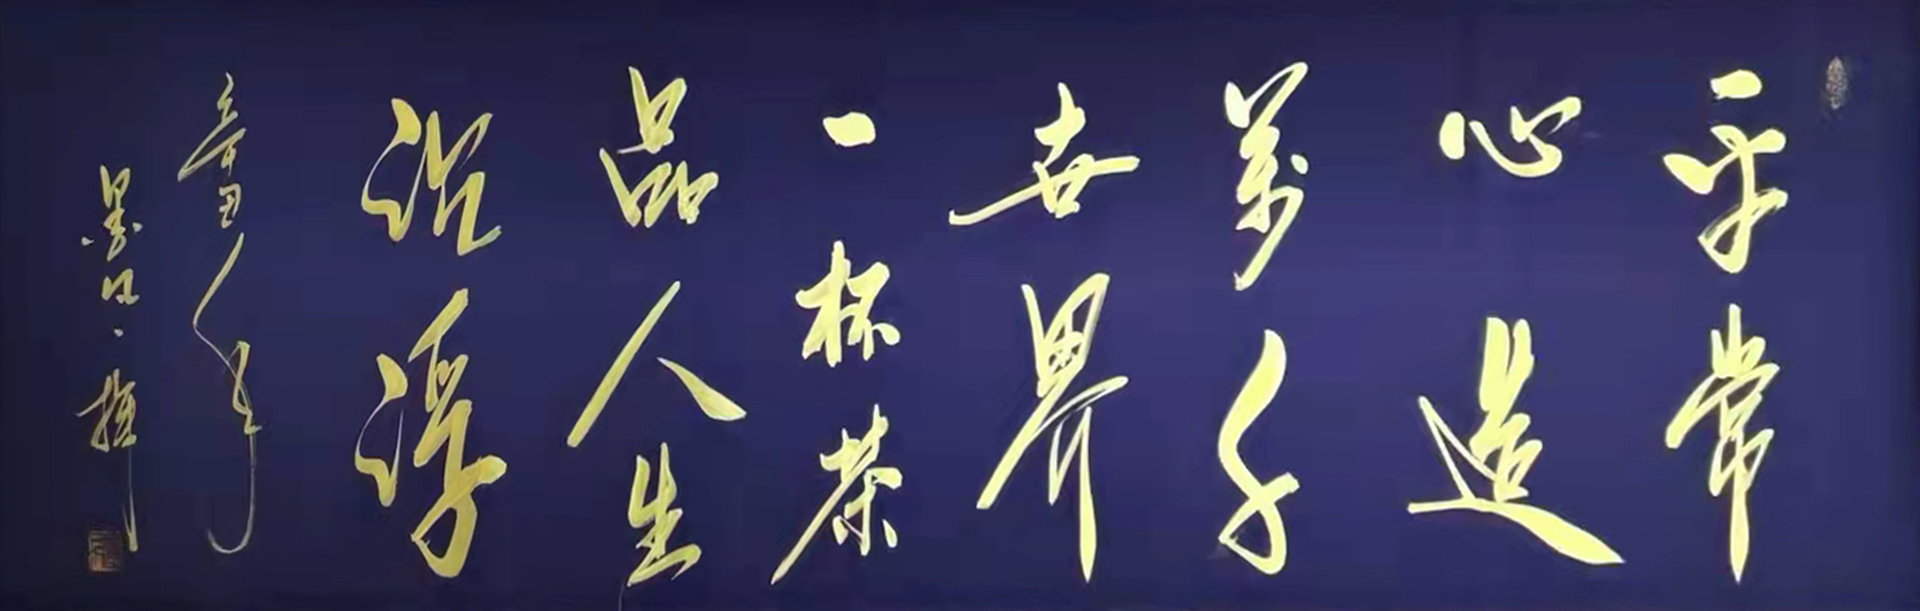 平常
心造
萬千
世界
一杯茶
品人生
沉浮
辛丑年